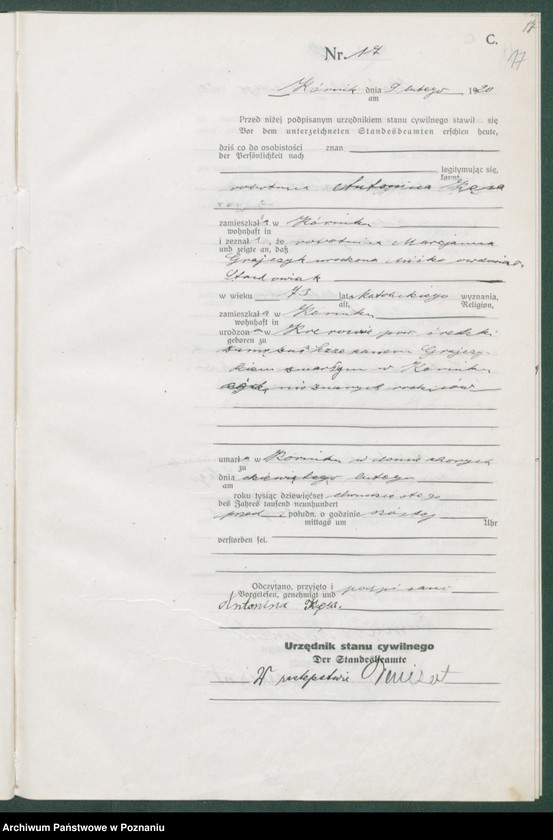 17
C.
Nr. 17
17
Kórnik dnia 9 lutego 1920
am
Przed niżej podpisanym urzędnikiem stanu cywilnego stawił się
Vor dem unterzeichneten Standesbeamten erschien heute,
dziś co do osobistości znan
der Persönlichkeit nach
legitymując się,
kannt,
robotnica Antonina
zamieszkała w Kórniku
wohnhaft in
i zeznał, że robotnica Marcjanna
und zeigte an, daß
Grajczyk urodzona
w wieku 73 lat, katolickiego wyznania,
alt, Religion,
zamieszkała w Kórniku
wohnhaft in
urodzona w pow. średzki
geboren zu
w Kórniku
nieznanych rodziców
umarła w Kórniku w domu chorych
zu
dnia dziewiątego lutego
am
roku tysiąc dziewięćset dwudziestego
des Jahres tausend neunhundert
przed połudn. o godzinie szóstej
mittags um Uhr
verstorben sei.
Odczytano, przyjęto i podpisano
Vorgelesen, genehmigt und
Antonina
Urzędnik stanu cywilnego
Der Standesbeamte
W zastępstwie
Archiwum Państwowe w Poznaniu